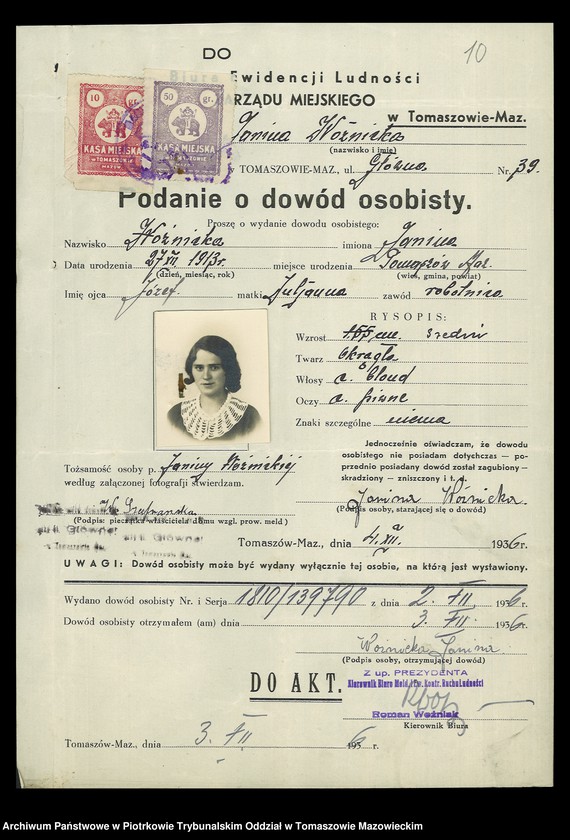 10
DO
Biura Ewidencji Ludności
ZARZĄDU MIEJSKIEGO
w Tomaszowie-Maz.
10 gr. KASA MIEJSKA w TOMASZOWIE MAZOW.
50 gr. KASA MIEJSKA
Janina Woźnicka
(nazwisko i imię)
TOMASZOWIE-MAZ., ul. Główna Nr. 39.
Podanie o dowód osobisty.
Proszę o wydanie dowodu osobistego:
Nazwisko Woźnicka imiona Janina
Data urodzenia 27 XII 1913r. miejsce urodzenia Tomaszów Maz.
(dzień, miesiąc, rok) (wieś, gmina, powiat)
Imię ojca Józef matki Juljanna zawód robotnica
RYSOPIS:
Wzrost 155 cm. średni
Twarz okrągła
Włosy c. blond
Oczy c. piwne
Znaki szczególne niema
Jednocześnie oświadczam, że dowodu
osobistego nie posiadam dotychczas — po-
przednio posiadany dowód został zagubiony -
skradziony — zniszczony i t. d.
Tożsamość osoby p. Janiny Woźnickiej
według załączonej fotografji stwierdzam.
Janina Woźnicka.
(Podpis osoby, starającej się o dowód)
(Podpis: pieczątka właściciela domu wzgl. prow. meld.)
Tomaszów-Maz., dnia 4. XII. 1936 r.
UWAGI: Dowód osobisty może być wydany wyłącznie tej osobie, na którą jest wystawiony.
Wydano dowód osobisty Nr. i Serja 1810/139790 z dnia 2. XII. 1936 r.
Dowód osobisty otrzymałem (am) dnia 3. XII 1936 r.
Woźnicka Janina
(Podpis osoby, otrzymującej dowód)
Z up. PREZYDENTA
Kierownik Biura Meld. i Ew. Kontr. Ruchu Ludności
DO AKT.
Roman Woźniak
Kierownik Biura
Tomaszów-Maz., dnia 3. XII 1936 r.
Archiwum Państwowe w Piotrkowie Trybunalskim Oddział w Tomaszowie Mazowieckim